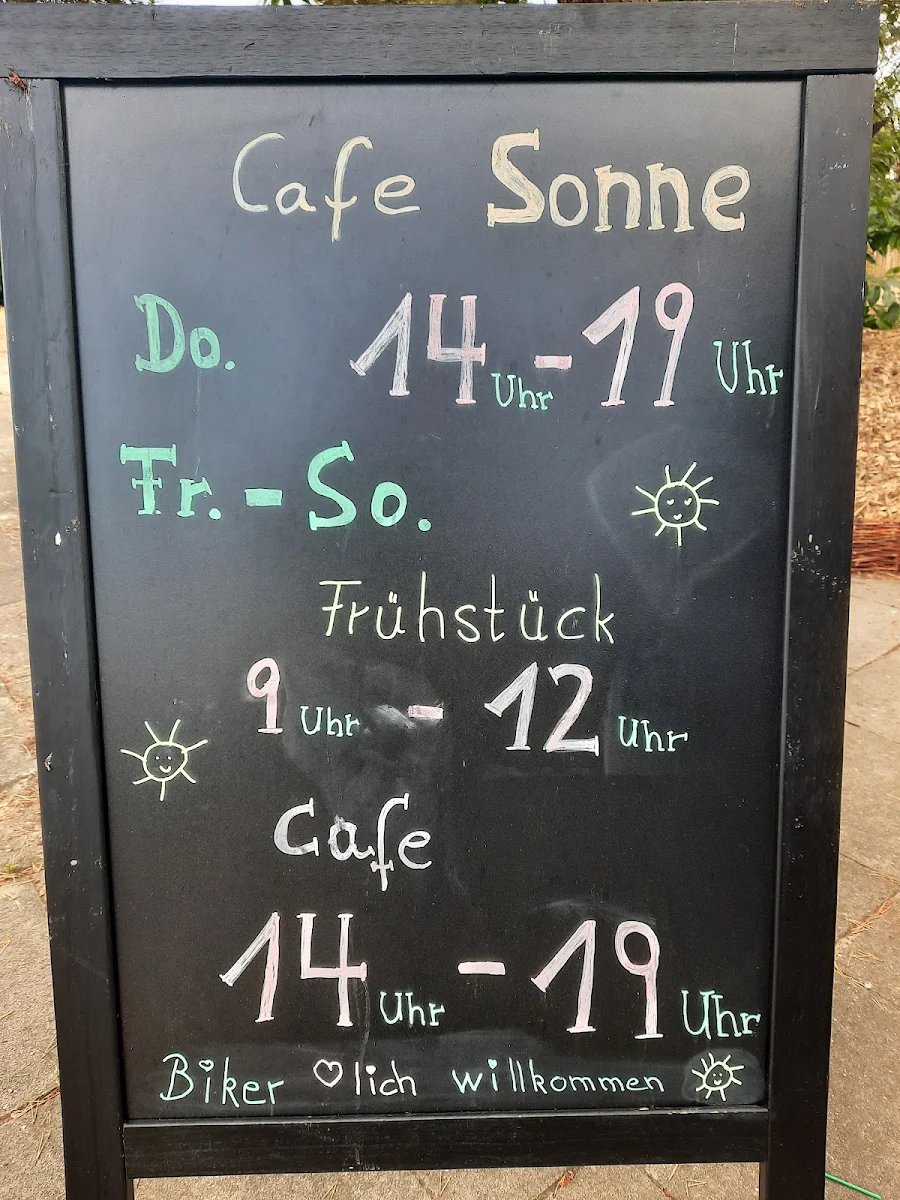 Cafe Sonne
Do. 14 Uhr - 19 Uhr
Fr. - So.
Frühstück
9 Uhr - 12 Uhr
Cafe
14 Uhr - 19 Uhr
Biker ♡lich willkommen